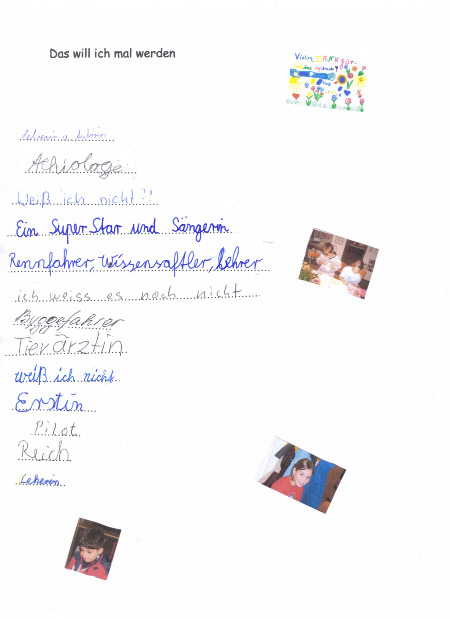 Das will ich mal werden
Vielen DANK für
Achiologe
Weiß ich nicht!!
Ein Super Star und Sängerin
Rennfahrer, Wissensaftler, Lehrer
ich weiss es noch nicht
Byggefahrer
Tierärztin
weiß ich nicht
Erstin
Pilot
Reich
Leherin